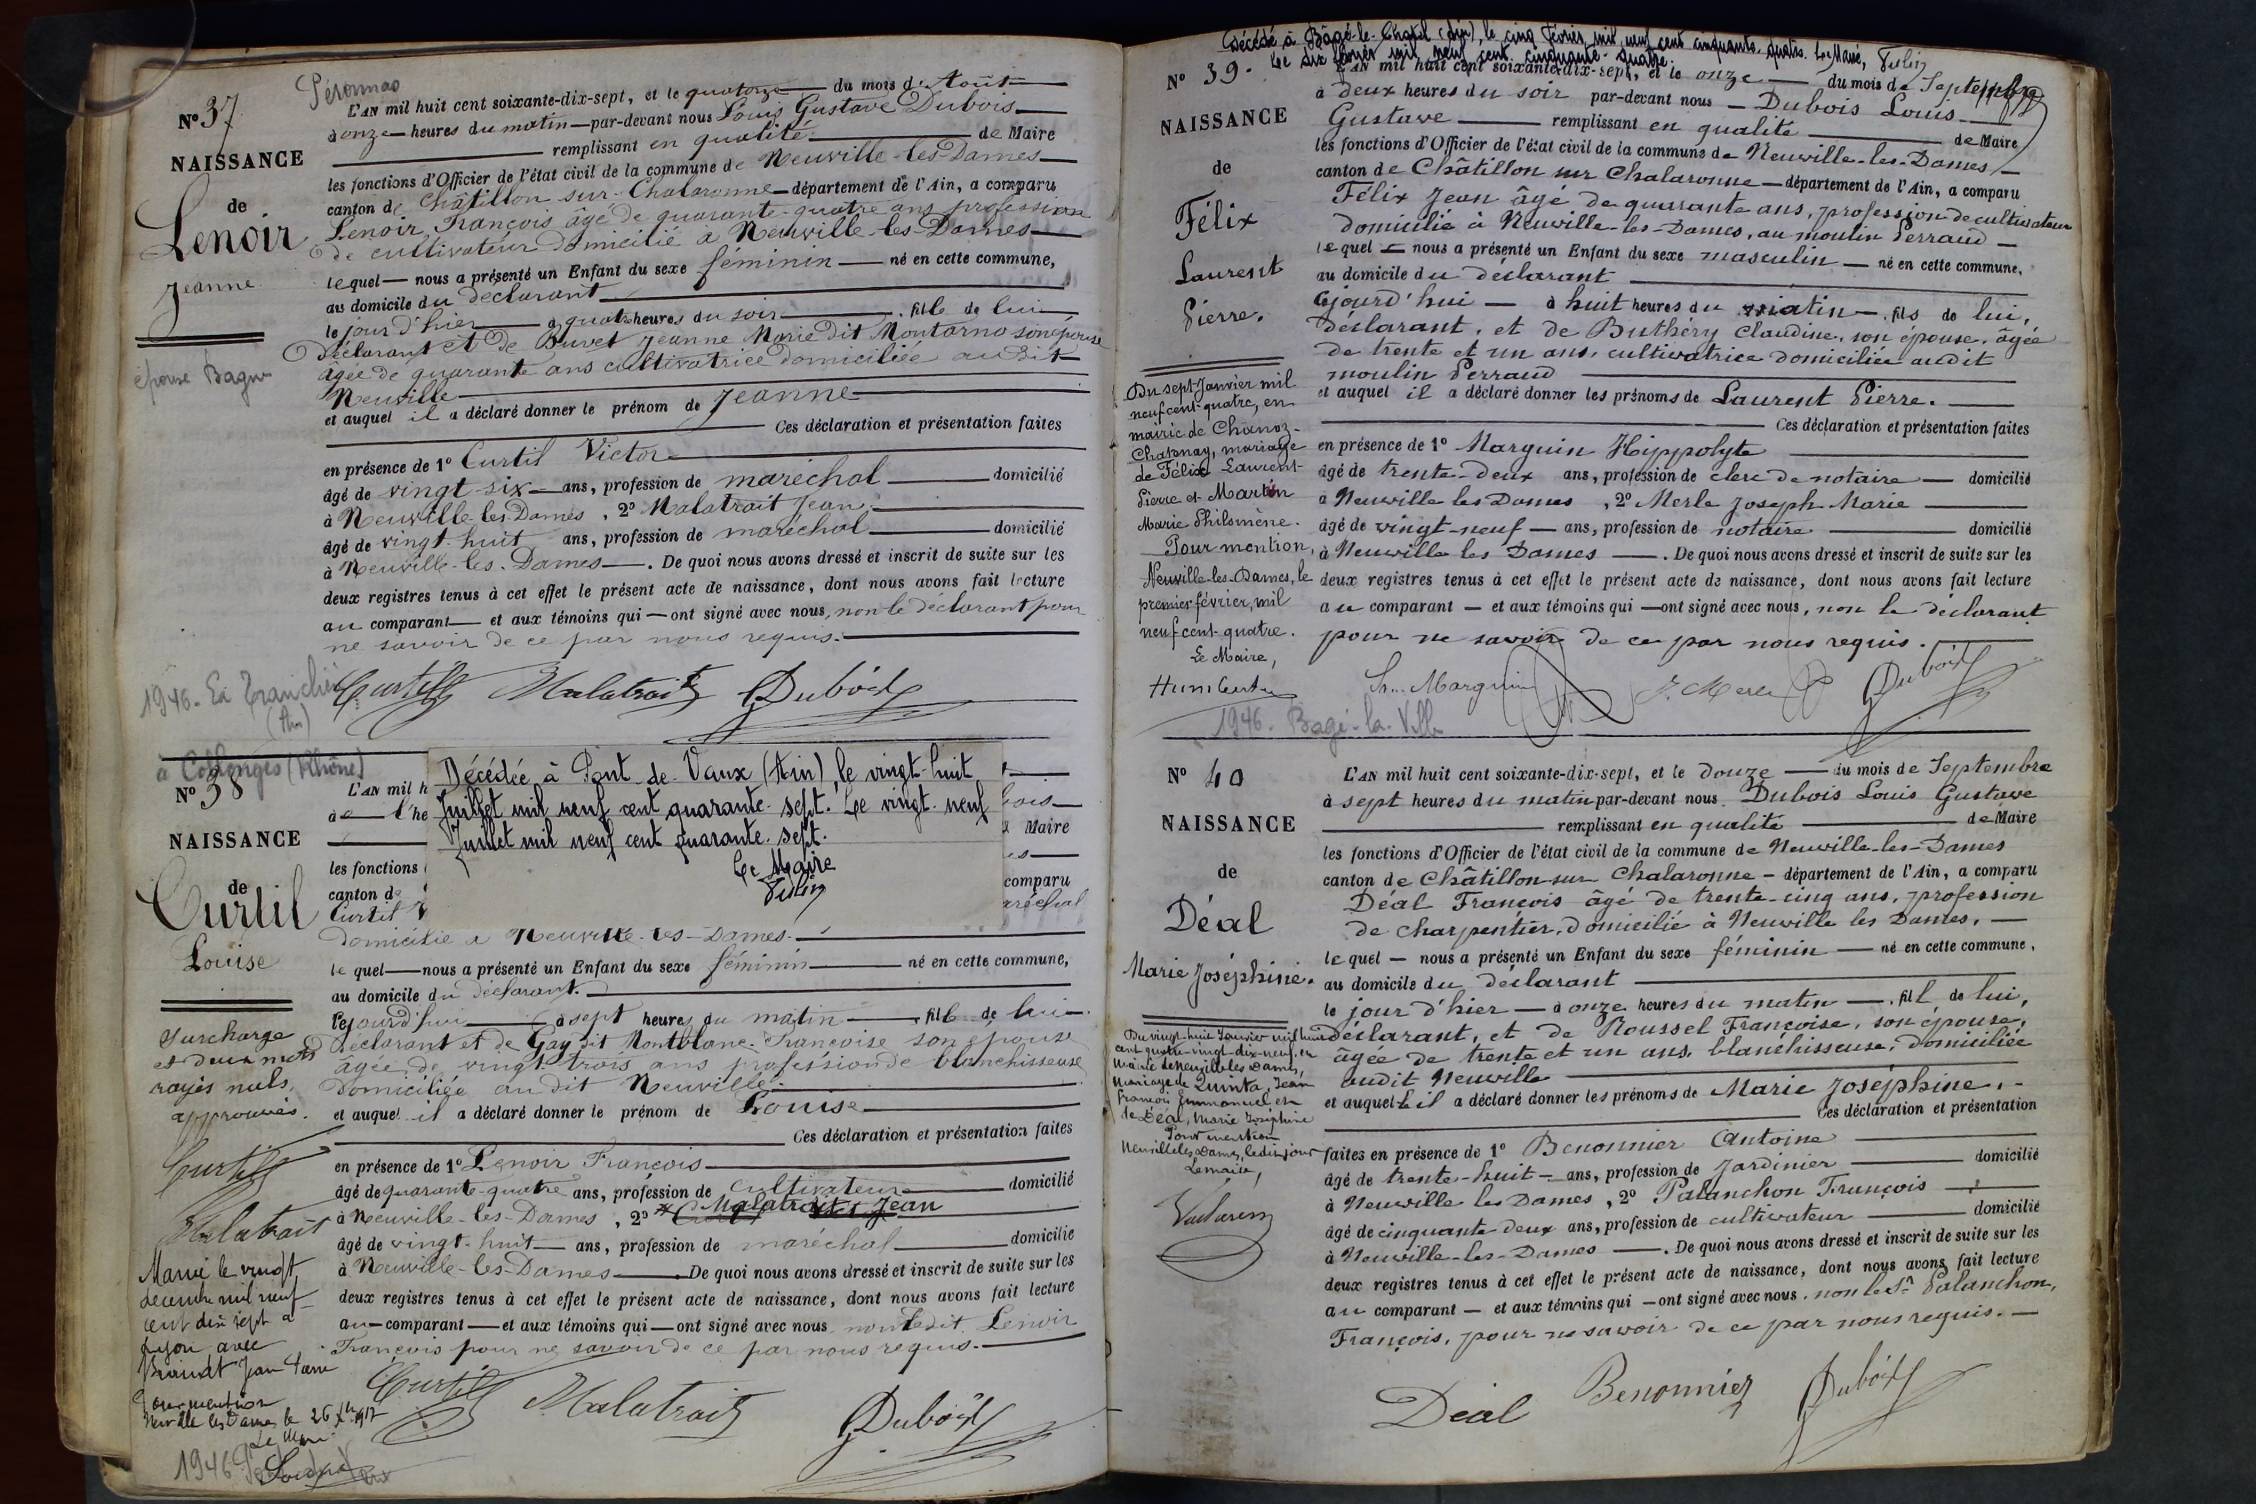 Péronnas
N° 37
NAISSANCE
de
Lenoir
Jeanne
épouse Bagu
L'AN mil huit cent soixante-dix-sept, et le quatorze du mois d'Août
à onze heures du matin par-devant nous Louis Gustave Dubois
remplissant en qualité de Maire
les fonctions d'Officier de l'état civil de la commune de Neuville-les-Dames
canton de Châtillon-sur-Chalaronne département de l'Ain, a comparu
Lenoir, François âgé de quarante-quatre ans profession
de cultivateur domicilié à Neuville-les-Dames
lequel nous a présenté un Enfant du sexe féminin né en cette commune,
au domicile du déclarant
le jour d'hier à quatre heures du soir fille de lui
Déclarant et de Buvet Jeanne Marie dit Montarno son épouse
âgée de quarante ans cultivatrice domiciliée au dit
Neuville
et auquel il a déclaré donner le prénom de Jeanne
Ces déclaration et présentation faites
en présence de 1° Curtil Victor
âgé de vingt-six ans, profession de maréchal domicilié
à Neuville-les-Dames, 2° Malatrait Jean
âgé de vingt-huit ans, profession de maréchal domicilié
à Neuville-les-Dames. De quoi nous avons dressé et inscrit de suite sur les
deux registres tenus à cet effet le présent acte de naissance, dont nous avons fait lecture
au comparant et aux témoins qui ont signé avec nous, non le déclarant pour
ne savoir de ce par nous requis.
Curtil Malatrait Dubois
1946. La Tranchée
à Collonges (Rhône)
N° 38
NAISSANCE
de
Curtil
Louise
Surcharge
et deux mots
rayés nuls,
approuvés.
Curtil
Malatrait
Marié le vingt
décembre mil neuf
cent dix sept à
Lyon avec
Jean Pierre
Pour mention
Neuville les Dames le 26 Xbre 1917
Le Maire
1946
L'AN mil h
Décédée à Pont-de-Vaux (Ain), le vingt-huit
Juillet mil neuf cent quarante-sept. Le vingt-neuf
Juillet mil neuf cent quarante-sept.
Le Maire
Maire
les fonctions
canton d
comparu
Curtil
maréchal
domicilié à Neuville-les-Dames
lequel nous a présenté un Enfant du sexe féminin né en cette commune,
au domicile du déclarant.
cejourd'hui à sept heures du matin, fille de lui
déclarant et de Gay dit Montblanc Françoise son épouse
âgée de vingt trois ans profession de blanchisseuse
domiciliée au dit Neuville
et auquel il a déclaré donner le prénom de Louise
Ces déclaration et présentation faites
en présence de 1° Lenoir François
âgé de quarante-quatre ans, profession de cultivateur domicilié
à Neuville-les-Dames, 2° Malatrait Jean
âgé de vingt-huit ans, profession de maréchal domicilié
à Neuville-les-Dames De quoi nous avons dressé et inscrit de suite sur les
deux registres tenus à cet effet le présent acte de naissance, dont nous avons fait lecture
au comparant et aux témoins qui ont signé avec nous non ledit Lenoir
François pour ne savoir de ce par nous requis.
Curtil Malatrait Dubois
Décédé à Bâgé-le-Châtel (Ain), le cinq février mil neuf cent cinquante-quatre. Le Maire,
Le six février mil neuf cent cinquante-quatre.
N° 39.
NAISSANCE
de
Félix
Laurent
Pierre.
Du sept Janvier mil
neuf cent quatre, en
mairie de Chanoz-
Chatenay, mariage
de Félix Laurent-
Pierre et Martin
Marie Philomène.
Pour mention,
Neuville-les-Dames, le
premier février, mil
neuf cent-quatre.
Le Maire,
Humbert
L'AN mil huit cent soixante-dix-sept, et le onze du mois de Septembre
à deux heures du soir par-devant nous Dubois Louis
Gustave remplissant en qualité de Maire
les fonctions d'Officier de l'état civil de la commune de Neuville-les-Dames
canton de Châtillon sur Chalaronne département de l'Ain, a comparu
Félix Jean âgé de quarante ans, profession de cultivateur
domicilié à Neuville-les-Dames, au moulin Perraud
lequel nous a présenté un Enfant du sexe masculin né en cette commune,
au domicile du déclarant
cejourd'hui à huit heures du matin, fils de lui,
déclarant, et de Buthéry Claudine, son épouse, âgée
de trente et un ans, cultivatrice domiciliée audit
moulin Perraud
et auquel il a déclaré donner les prénoms de Laurent Pierre.
Ces déclaration et présentation faites
en présence de 1° Marguin Hippolyte
âgé de trente-deux ans, profession de clerc de notaire domicilié
à Neuville les Dames, 2° Merle Joseph Marie
âgé de vingt-neuf ans, profession de notaire domicilié
à Neuville les Dames. De quoi nous avons dressé et inscrit de suite sur les
deux registres tenus à cet effet le présent acte de naissance, dont nous avons fait lecture
au comparant et aux témoins qui ont signé avec nous, non le déclarant
pour ne savoir de ce par nous requis.
H. Marguin J. Merle Dubois
1946. Bagé-la-Ville
N° 40
NAISSANCE
de
Déal
Marie Joséphine.
Du vingt-huit Janvier mil huit
cent quatre-vingt-dix-neuf, en
Mairie de Neuville les Dames,
Mariage de Quinta, Jean
François Emmanuel et
de Déal, Marie Joséphine
Pour mention
Neuville les Dames, ledit jour
Le Maire,
L'AN mil huit cent soixante-dix-sept, et le douze du mois de Septembre
à sept heures du matin par-devant nous Dubois Louis Gustave
remplissant en qualité de Maire
les fonctions d'Officier de l'état civil de la commune de Neuville-les-Dames
canton de Châtillon-sur-Chalaronne - département de l'Ain, a comparu
Déal François âgé de trente-cinq ans, profession
de charpentier, domicilié à Neuville les Dames,
lequel nous a présenté un Enfant du sexe féminin né en cette commune,
au domicile du déclarant
le jour d'hier à onze heures du matin, fille de lui,
déclarant, et de Roussel Françoise, son épouse,
âgée de trente et un ans, blanchisseuse, domiciliée
audit Neuville
et auquel il a déclaré donner les prénoms de Marie Joséphine.
Ces déclaration et présentation
faites en présence de 1° Benonnier Antoine
âgé de trente-huit ans, profession de Jardinier domicilié
à Neuville les Dames, 2° Palanchon François
âgé de cinquante deux ans, profession de cultivateur domicilié
à Neuville-les-Dames. De quoi nous avons dressé et inscrit de suite sur les
deux registres tenus à cet effet le présent acte de naissance, dont nous avons fait lecture
au comparant et aux témoins qui ont signé avec nous, non le Sr Palanchon,
François, pour ne savoir de ce par nous requis.
Déal Benonnier Dubois